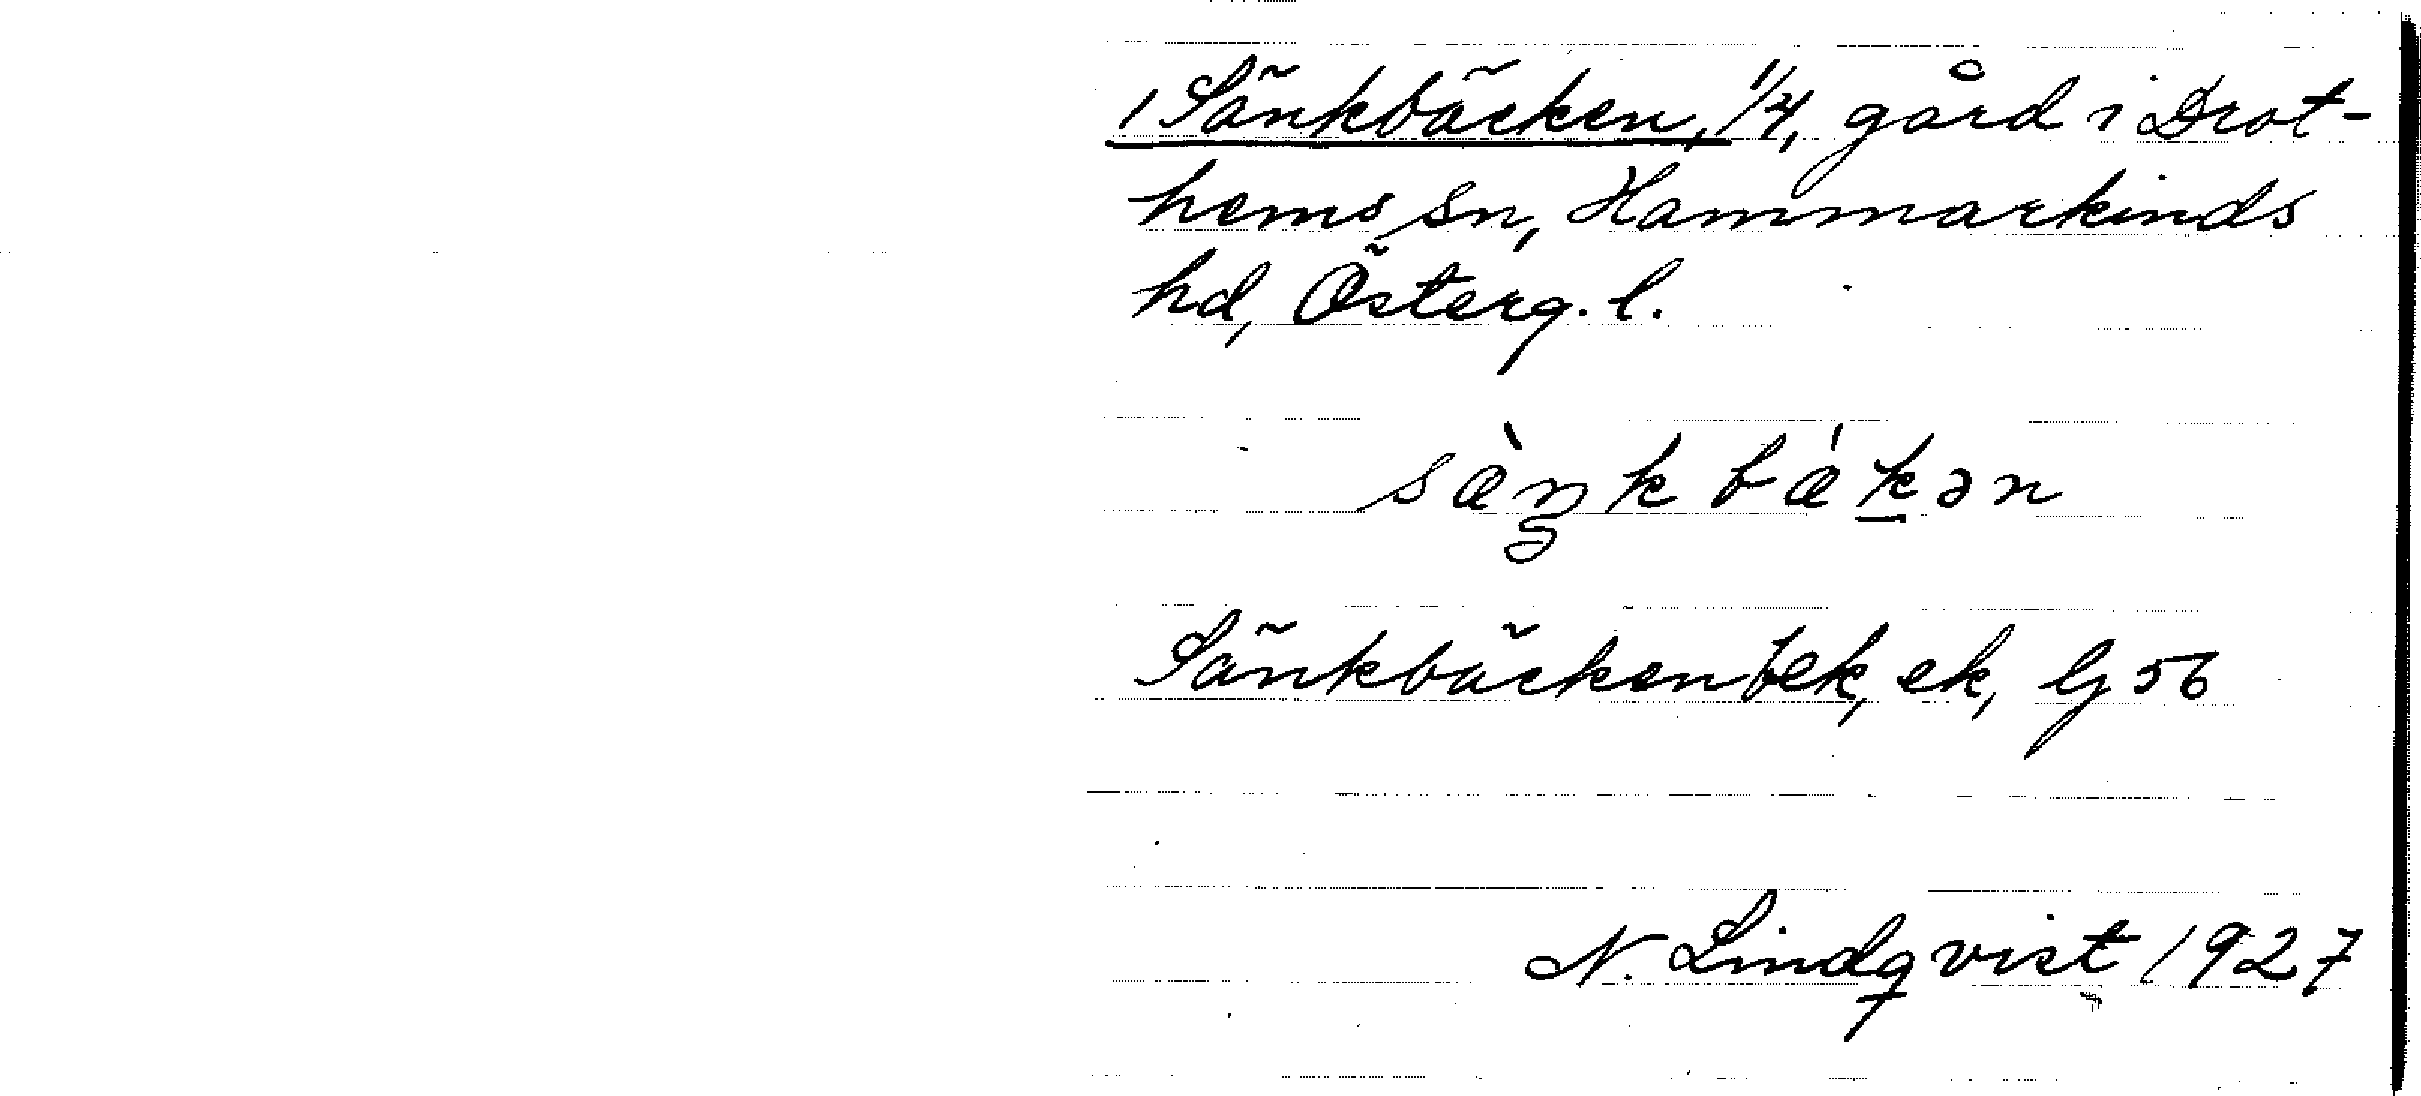 1 Sänkbäcken, 1/4, gård i Drot-
hems sn, Hammarkinds
hd, Österg. l.
sàŋkbákən
Sänkbäcken bek, ek, G 56
N. Lindqvist 1927